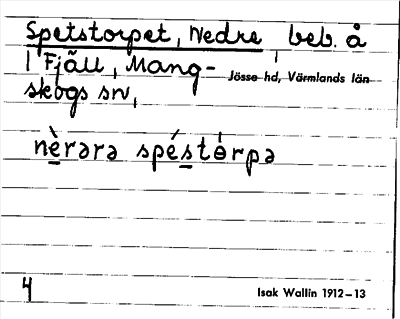 Spetstorpet, Nedre, beb. å
1 Fjäll, Mang-
Jösse hd, Värmlands län
skogs sn,
nè̱rərə spés̱tòrpə
4
Isak Wallin 1912–13